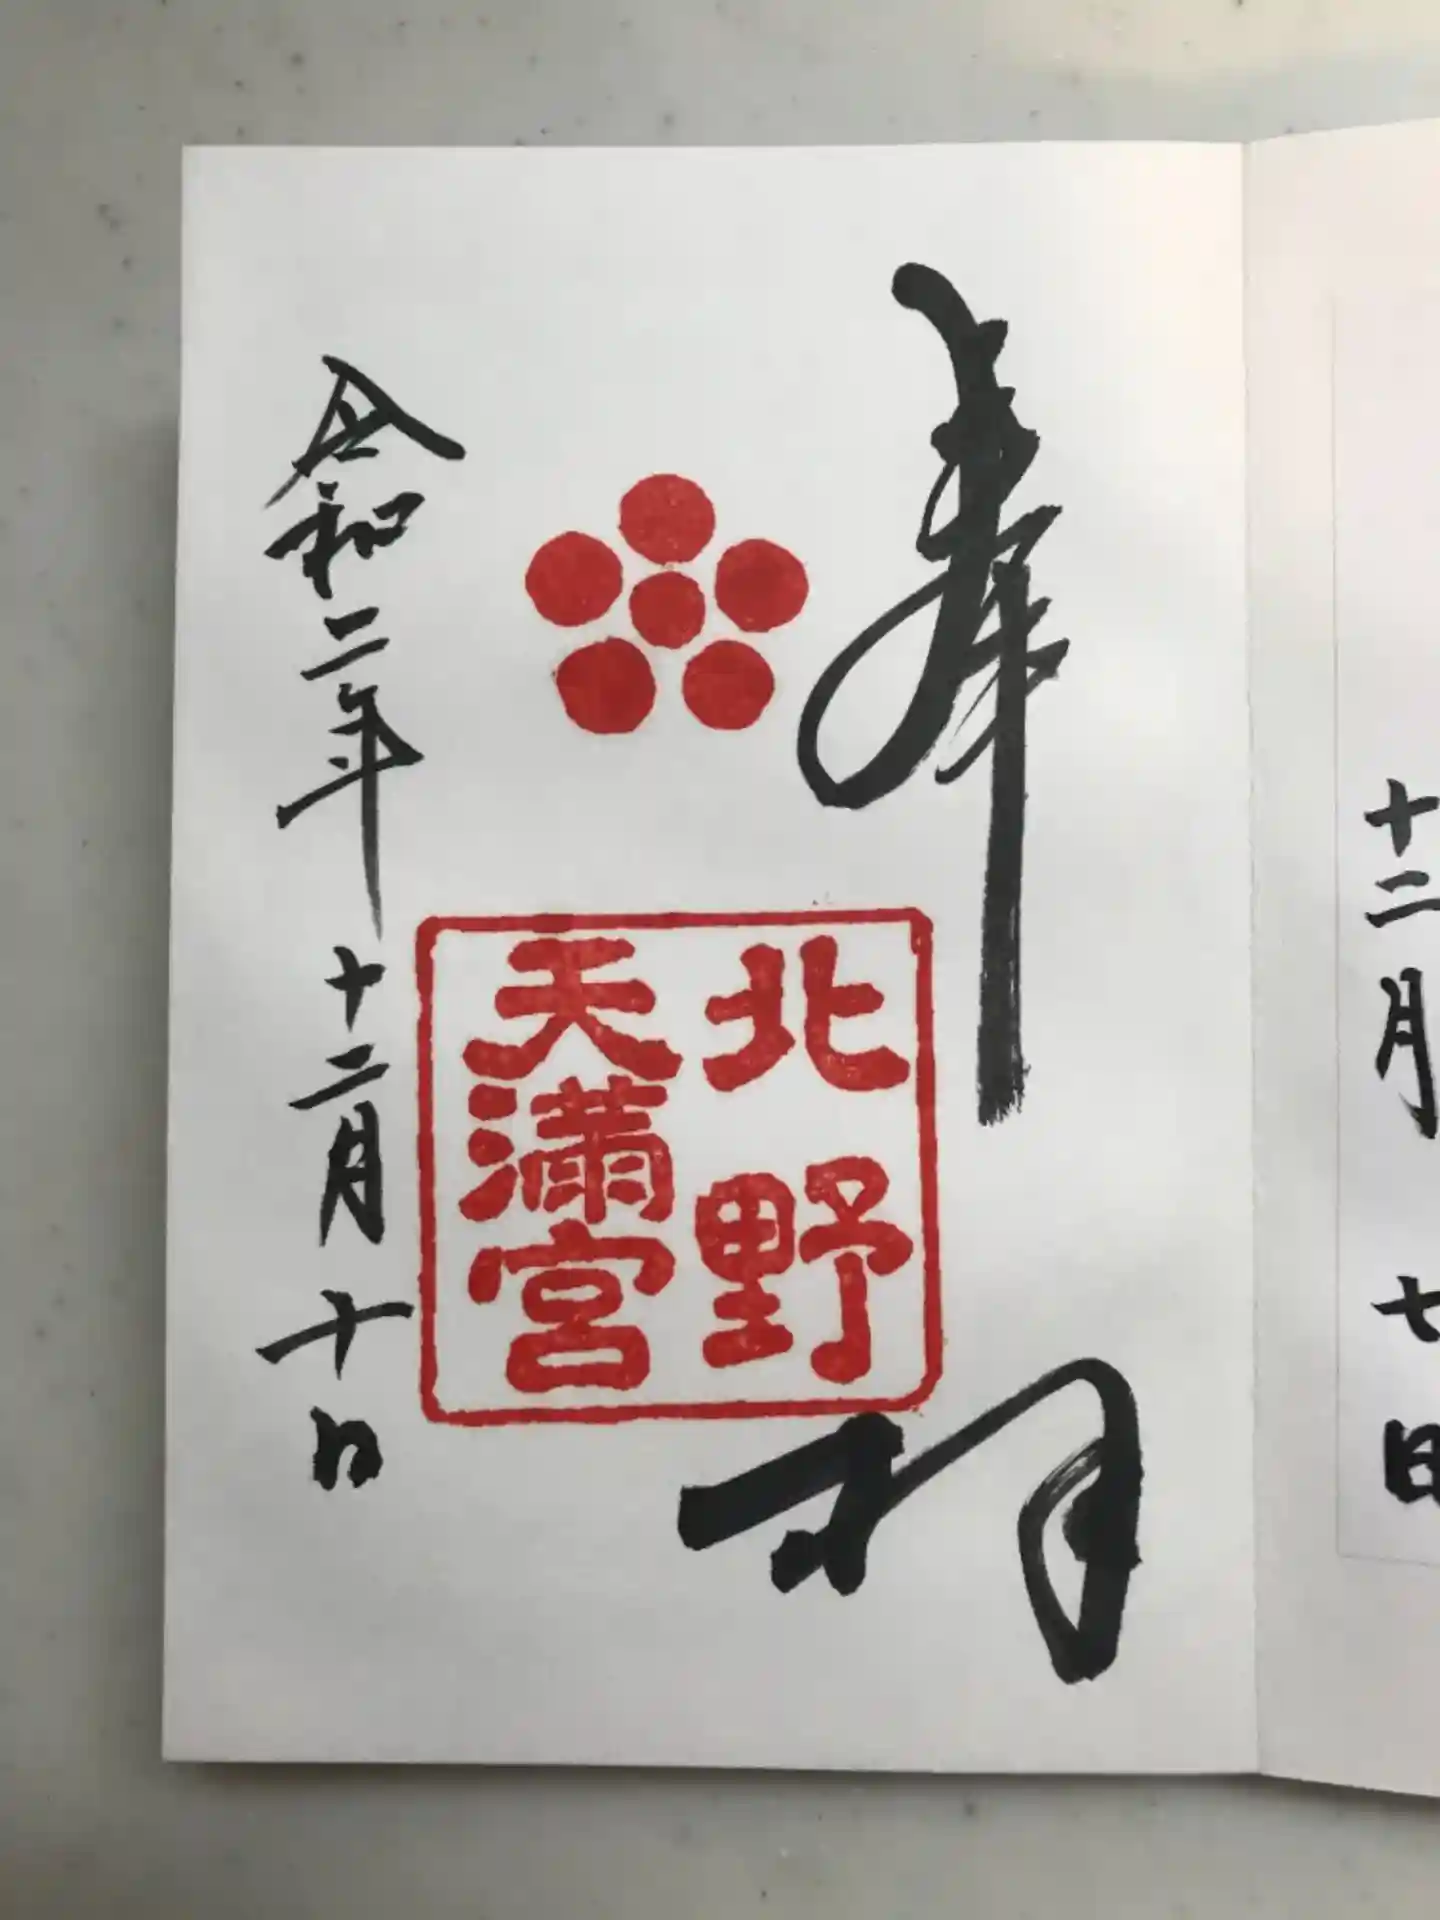 十二月 七日
奉拝
北野
天満宮
令和二年十二月十日